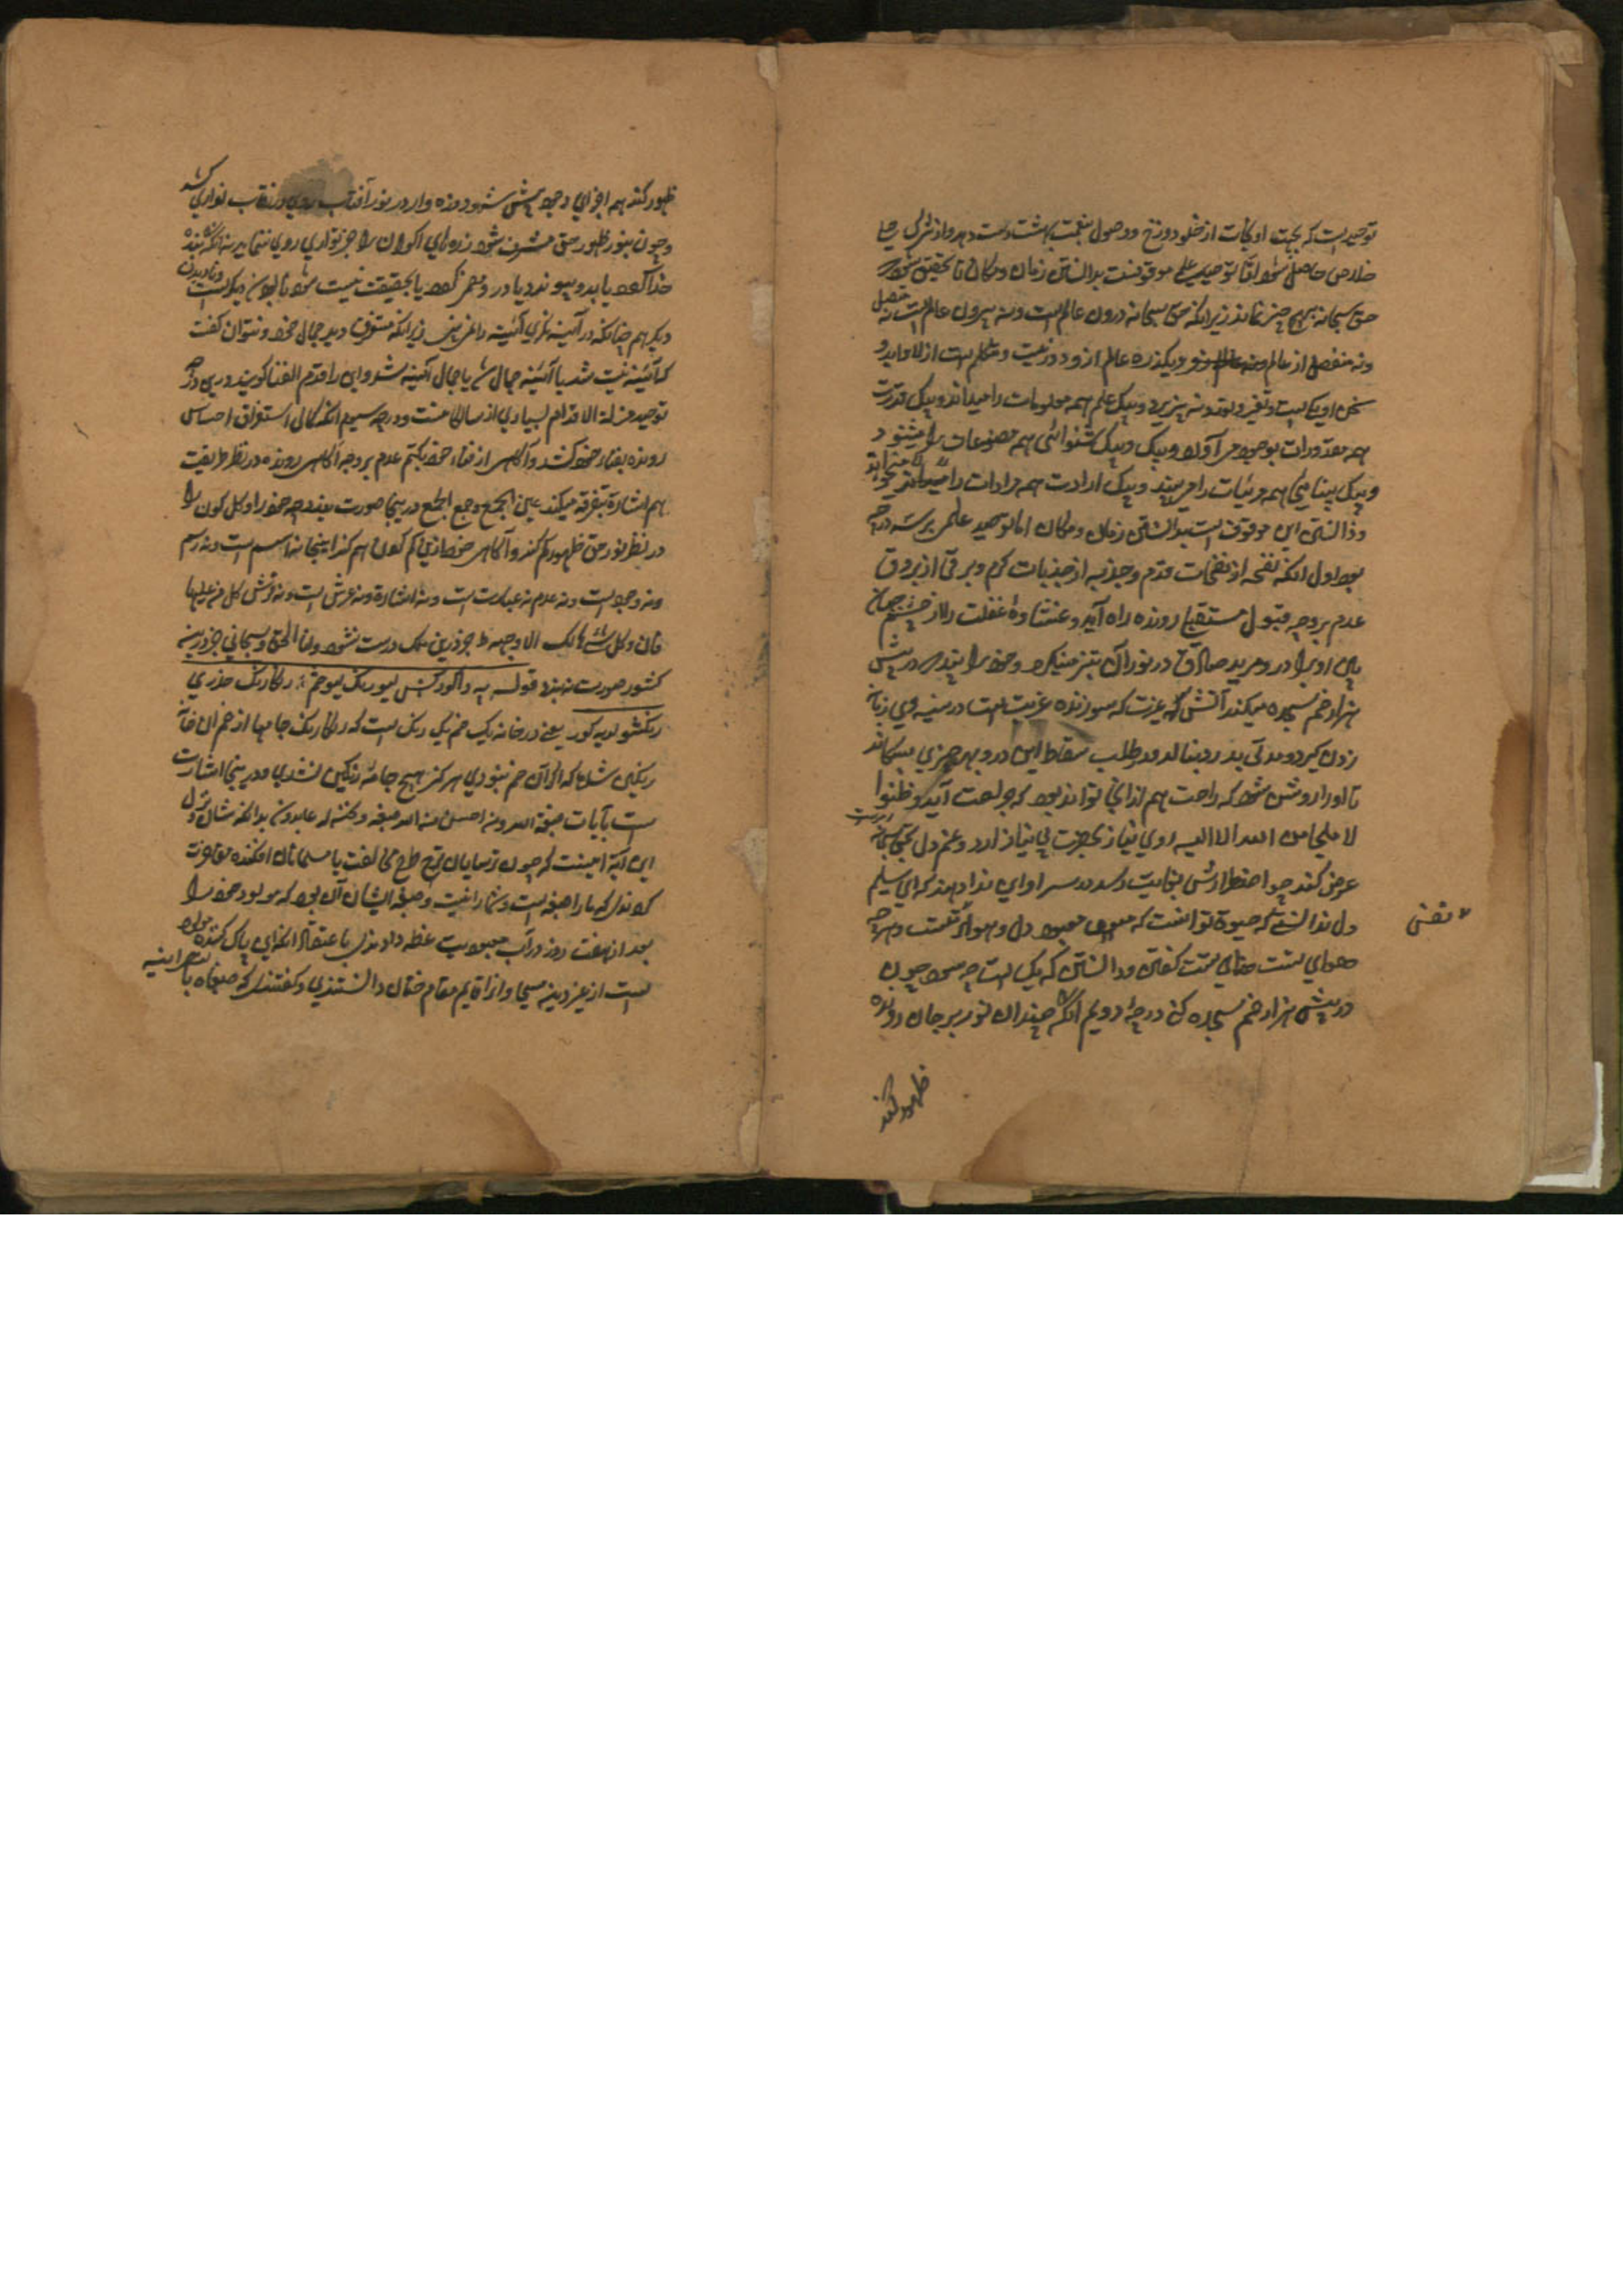 توحید است که بجهت او نجات از خلود دوزخ و وصول بنعمت بهشت دست دهد و از شرک جلی
خلاص حاصل شود اما توحید علمی موقوفست بدانستن زمان و مکان تا تحقیق شود که
حق سبحانه بهیچ چیز نماند زیرانکه حق سبحانه درون عالم است و نه بیرون عالم است نه متصل
و نه منفصل از عالم و یکذره عالم ازو دور نیست و متکلم است ازلا و ابدا و
سخن او یکیست و تغیر و نپذیرد و بیک علم همه معلومات را میداند و بیک قدرت
همه مقدورات بوجود می آورد و بیک شنوائی همه مصنوعات را میشنود
و بیک بینائی همه مرئیات را می بیند و بیک ارادت همه مرادات را میخواهد
و دانستن این موقوف است بدانستن زمان و مکان اما توحید علم بر سه درجه
بود اول انکه نفحه از نفحات قدم و جذبه از جذبات کرم و برقی از بروق
عدم بر وجه قبول مستقبل رونده راه آید و غشاوهٔ غفلت را از چشم جهان
بین او بردارد و مرید صادق در نور آن تیز مینگرد و خود را بیند که در پیش
هزار خم سجده میکند آتش که عزت که سوزنده غریت است در سینه وی زبانه
زدن گیرد و مدتی بدرد بنالد و در طلب سقاط این درد بهر چیزی
تا او را روشن شود که راحت هم از انجا تواند بود که جراحت آید و ظنوا
لا ملجا من الله الا الیه روی نیاز بحضرت بی نیاز آرد و غم دل بحق سبحانه
عرض کند چو اضطرارش بنهایت رسد در سر او این ندا دهند که ای سلیم
دل ندانسته که حیوة توانست که معبود دل و هوای تست و هر چه
هوای تست خدای تست گفتن و دانستن که یکی است چه سود چون
در پیش هزار خم سجده کنی درجهٔ دویم آنکه چندان نور بر جان رونده
ظهور کند
نفسی
ظهور کند همه اجزای وجود پیش شهود ذره وار در نور آفتاب روی در نقاب تواری کشد
و چون بنور ظهور حق مشرف شود ذره های اکوان را جز تواری روی ننماید نه آنکه بنده
خدا گردد یا بدو پیوندد یا در و مضمر گردد یا بحقیقت نیست شود نابودن دیگر است و نادیدن
دیگر همچنانکه در آئینه نگری آئینه را نمی بینی زیرانکه مستغرق دید جمال خود و نتوان گفت
که آئینه نیست شد یا آئینه جمال شد یا جمال آئینه شد و این را قدم الفنا گویند و درین درجه
توحید منزلة الاقدام بسیاری از سالکانست و درجه سیوم انکه کمال استغراق احساس
رونده بفناء خود کشد و آگاهی از فناء خود بکتم عدم برد چه آگاهی رونده در نظر طریقت
هم اشارة بتفرقه میکند عین الجمع و جمع الجمع درینجا صورت بندد چه خود را و کل کون را
در نظر نور حق ظهور گم کند و آگاهی خود را نیز گم کردن هم گم کند اینجا نه اسم است و نه رسم
و نه وجود است و نه عدم نه عبارت است و نه اشارة و نه عرش است و نه فرش کل من علیها
فان و کل شئ هالک الا وجهه ط جز درین ملک درست نشود و انا الحق و سبحانی جز درینه
کشور صورت نبندد قوله یه
رنگشو لویه کور یعنی در خانه یک خم یک رنگ است که رنگارنگ جامها از خم آن خانه
رنگین شد که اگر آن خم نبودی هرگز هیچ جامه رنگین نشدی و درینجا اشارت
است بآیات صبغة الله و من احسن من الله صبغة و نحن له عابدون بدانکه شان نزول
این آیة اینست که چون ترسایان طرح مخالفت با مسلمانان افکنده مفاخرت
کردند که ما را صبغه است و شما را نیست و صبغه ایشان آن بود که مولود خود را
بعد از هفت روز در آب معمودیت غطه دادندی باعتقاد آنکه این پاک کننده مولود
است از غیر دینه مسیحا و از قایم مقام ختان دانستندی و گفتندی که صبغناه بالنصرانیه